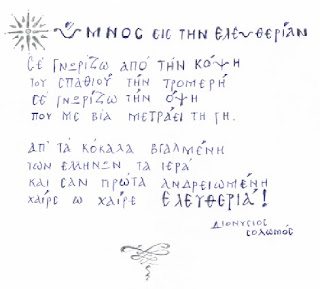 ὝΜΝΟΣ ΕΙΣ ΤΗΝ ΕΛΕΥΘΕΡΊΑΝ
ΣΈ ΓΝΩΡΊΖΩ ΑΠΌ ΤΉΝ ΚΌΨΗ
ΤΟΥ ΣΠΑΘΙΟΎ ΤΉΝ ΤΡΟΜΕΡΉ
ΣΈ ΓΝΩΡΊΖΩ ΤΉΝ ΌΨΗ
ΠΟΥ ΜΕ ΒΊΑ ΜΕΤΡΆΕΙ ΤΗ ΓΗ.
ΑΠ' ΤΆ ΚΌΚΑΛΑ ΒΓΑΛΜΈΝΗ
ΤΩΝ ΕΛΛΉΝΩΝ ΤΑ ΙΕΡΆ
ΚΑΙ ΣΑΝ ΠΡΏΤΑ ΑΝΔΡΕΙΩΜΈΝΗ
ΧΑΊΡΕ Ω ΧΑΊΡΕ ΕΛΕΥΘΕΡΙΆ!
ΔΙΟΝΎΣΙΟΣ
ΣΟΛΩΜΌΣ